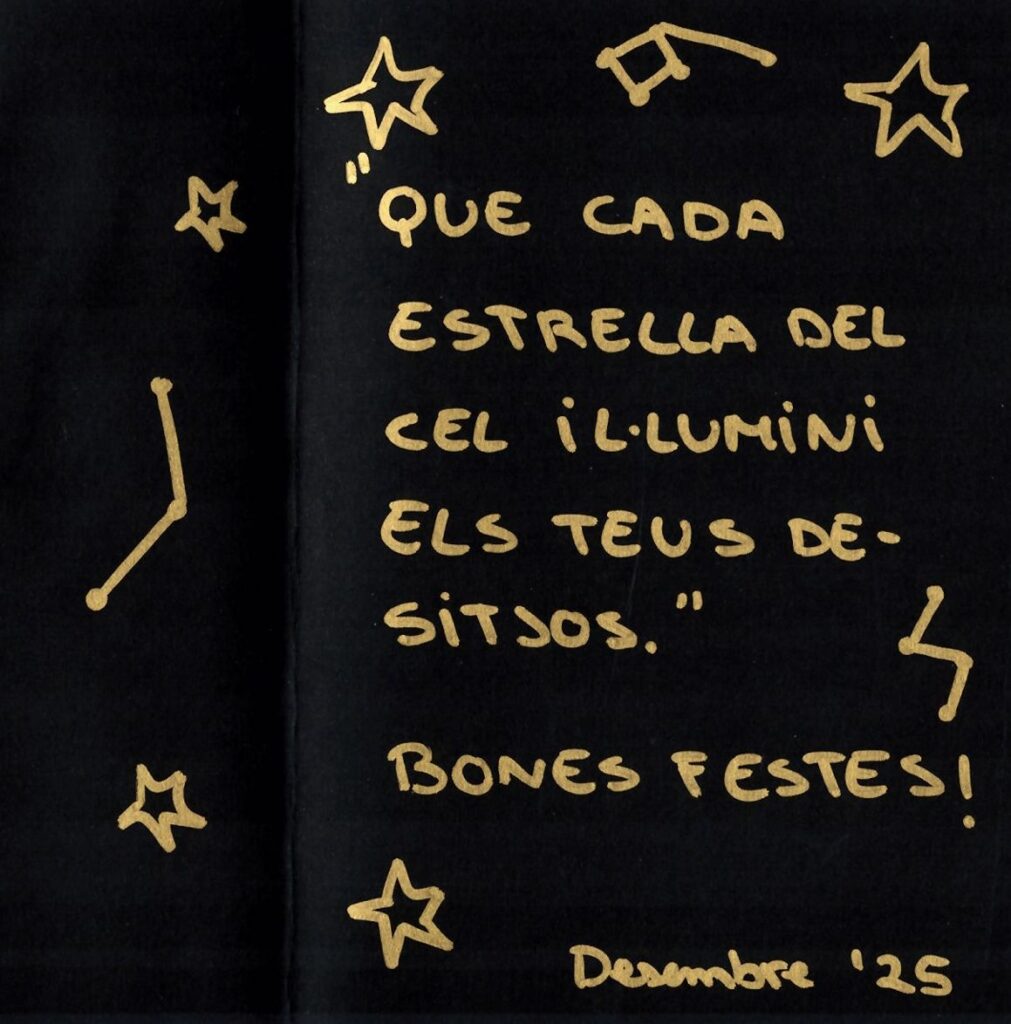 "QUE CADA
ESTRELLA DEL
CEL IL·LUMINI
ELS TEUS DE-
SITJOS."
BONES FESTES!
Desembre '25